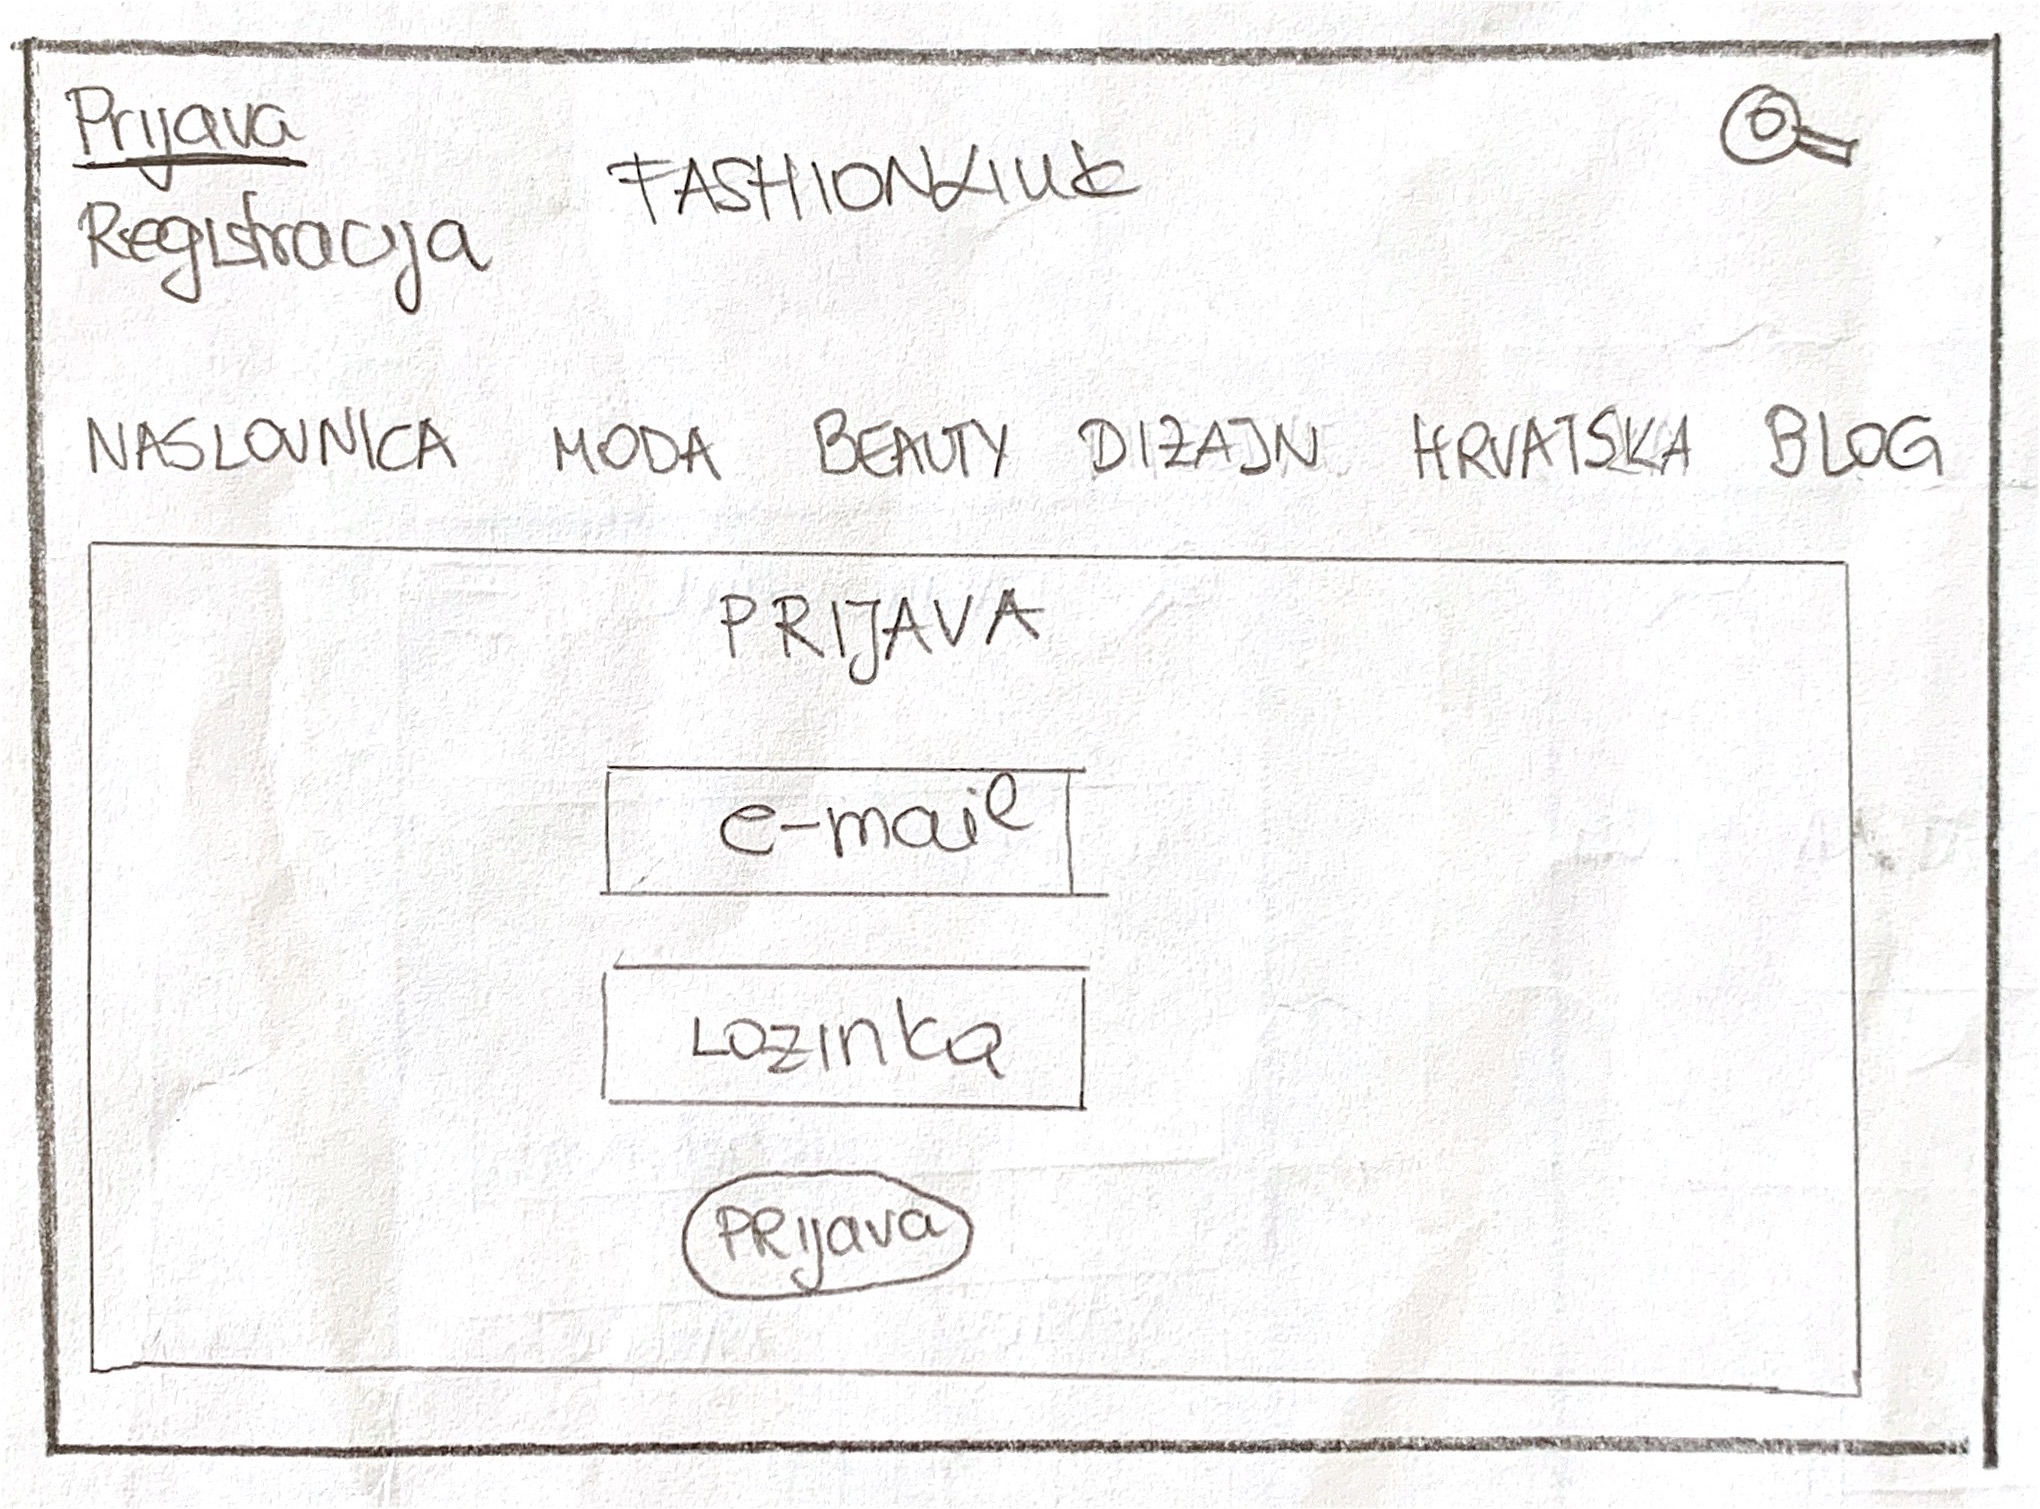 Prijava
Registracija
NASLOVNICA MODA BEAUTY DIZAJN HRVATSKA BLOG
PRIJAVA
e-mail
Lozinka
PRijava